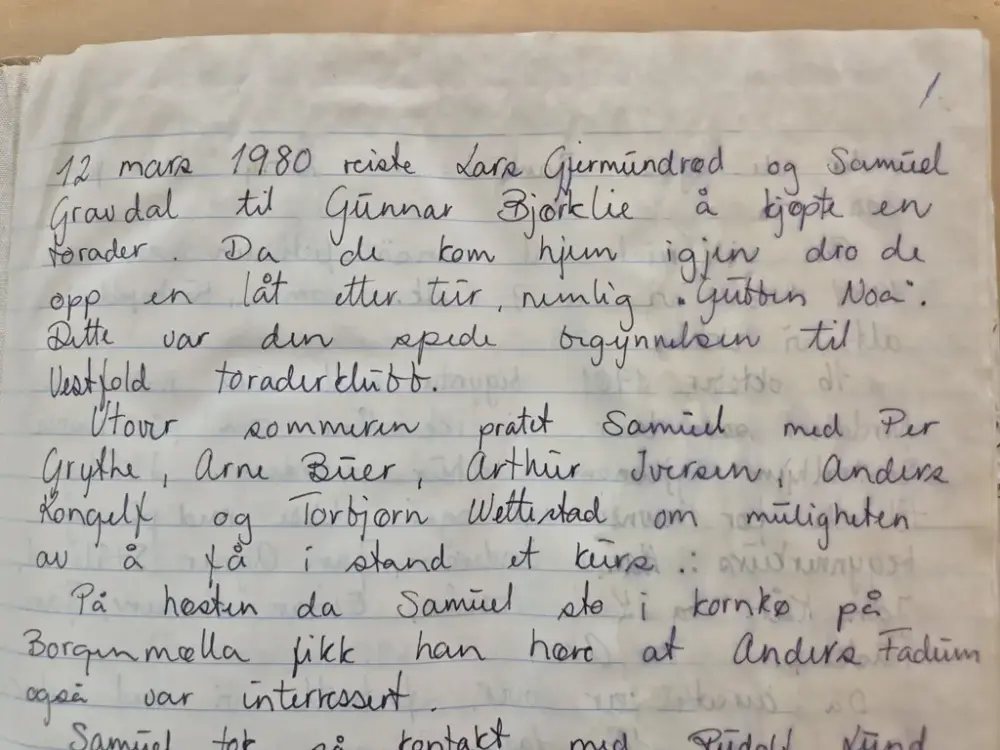 1.
12 mars 1980 reiste Lars Gjermundrød og Samuel
Gravdal til Gunnar Bjørklie å kjøpte en
torader. Da de kom hjem igjen dro de
opp en låt etter tur, nemlig "Gubben Noa".
Dette var den spede begynnelsen til
Vestfold toraderklubb.
Utover sommeren pratet Samuel med Per
Grythe, Arne Buer, Arthur Iversen, Anders
Kongelf og Torbjørn Wettestad om muligheten
av å få i stand et kurs.:
På høsten da Samuel sto i kornkø på
Borgenmølla fikk han høre at Anders Fadum
også var interressert.
Samuel tok så kontakt med Rudolf Lund